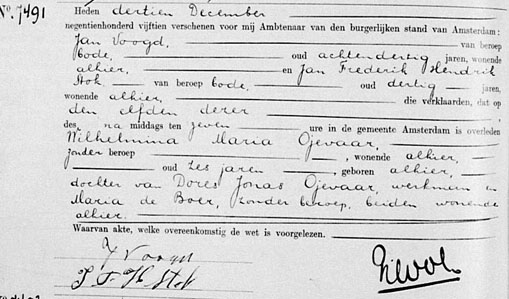 No. 7491
Heden dertien December
negentienhonderd vijftien verschenen voor mij Ambtenaar van den burgerlijken stand van Amsterdam:
Jan Voogd, van beroep
bode, oud achtendertig jaren, wonende
alhier, en Jan Frederik Hendrik
Stok van beroep bode, oud dertig jaren,
wonende alhier, die verklaarden, dat op
den elfden dezer
des na middags ten zeven ure in de gemeente Amsterdam is overleden
Wilhelmina Maria Ojevaar,
zonder beroep, wonende alhier,
oud zes jaren, geboren alhier,
dochter van Dores Jonas Ojevaar, werkman en
Maria de Boer, zonder beroep, beiden wonende
alhier.
Waarvan akte, welke overeenkomstig de wet is voorgelezen.
J Voogd
J. F. H. Stok